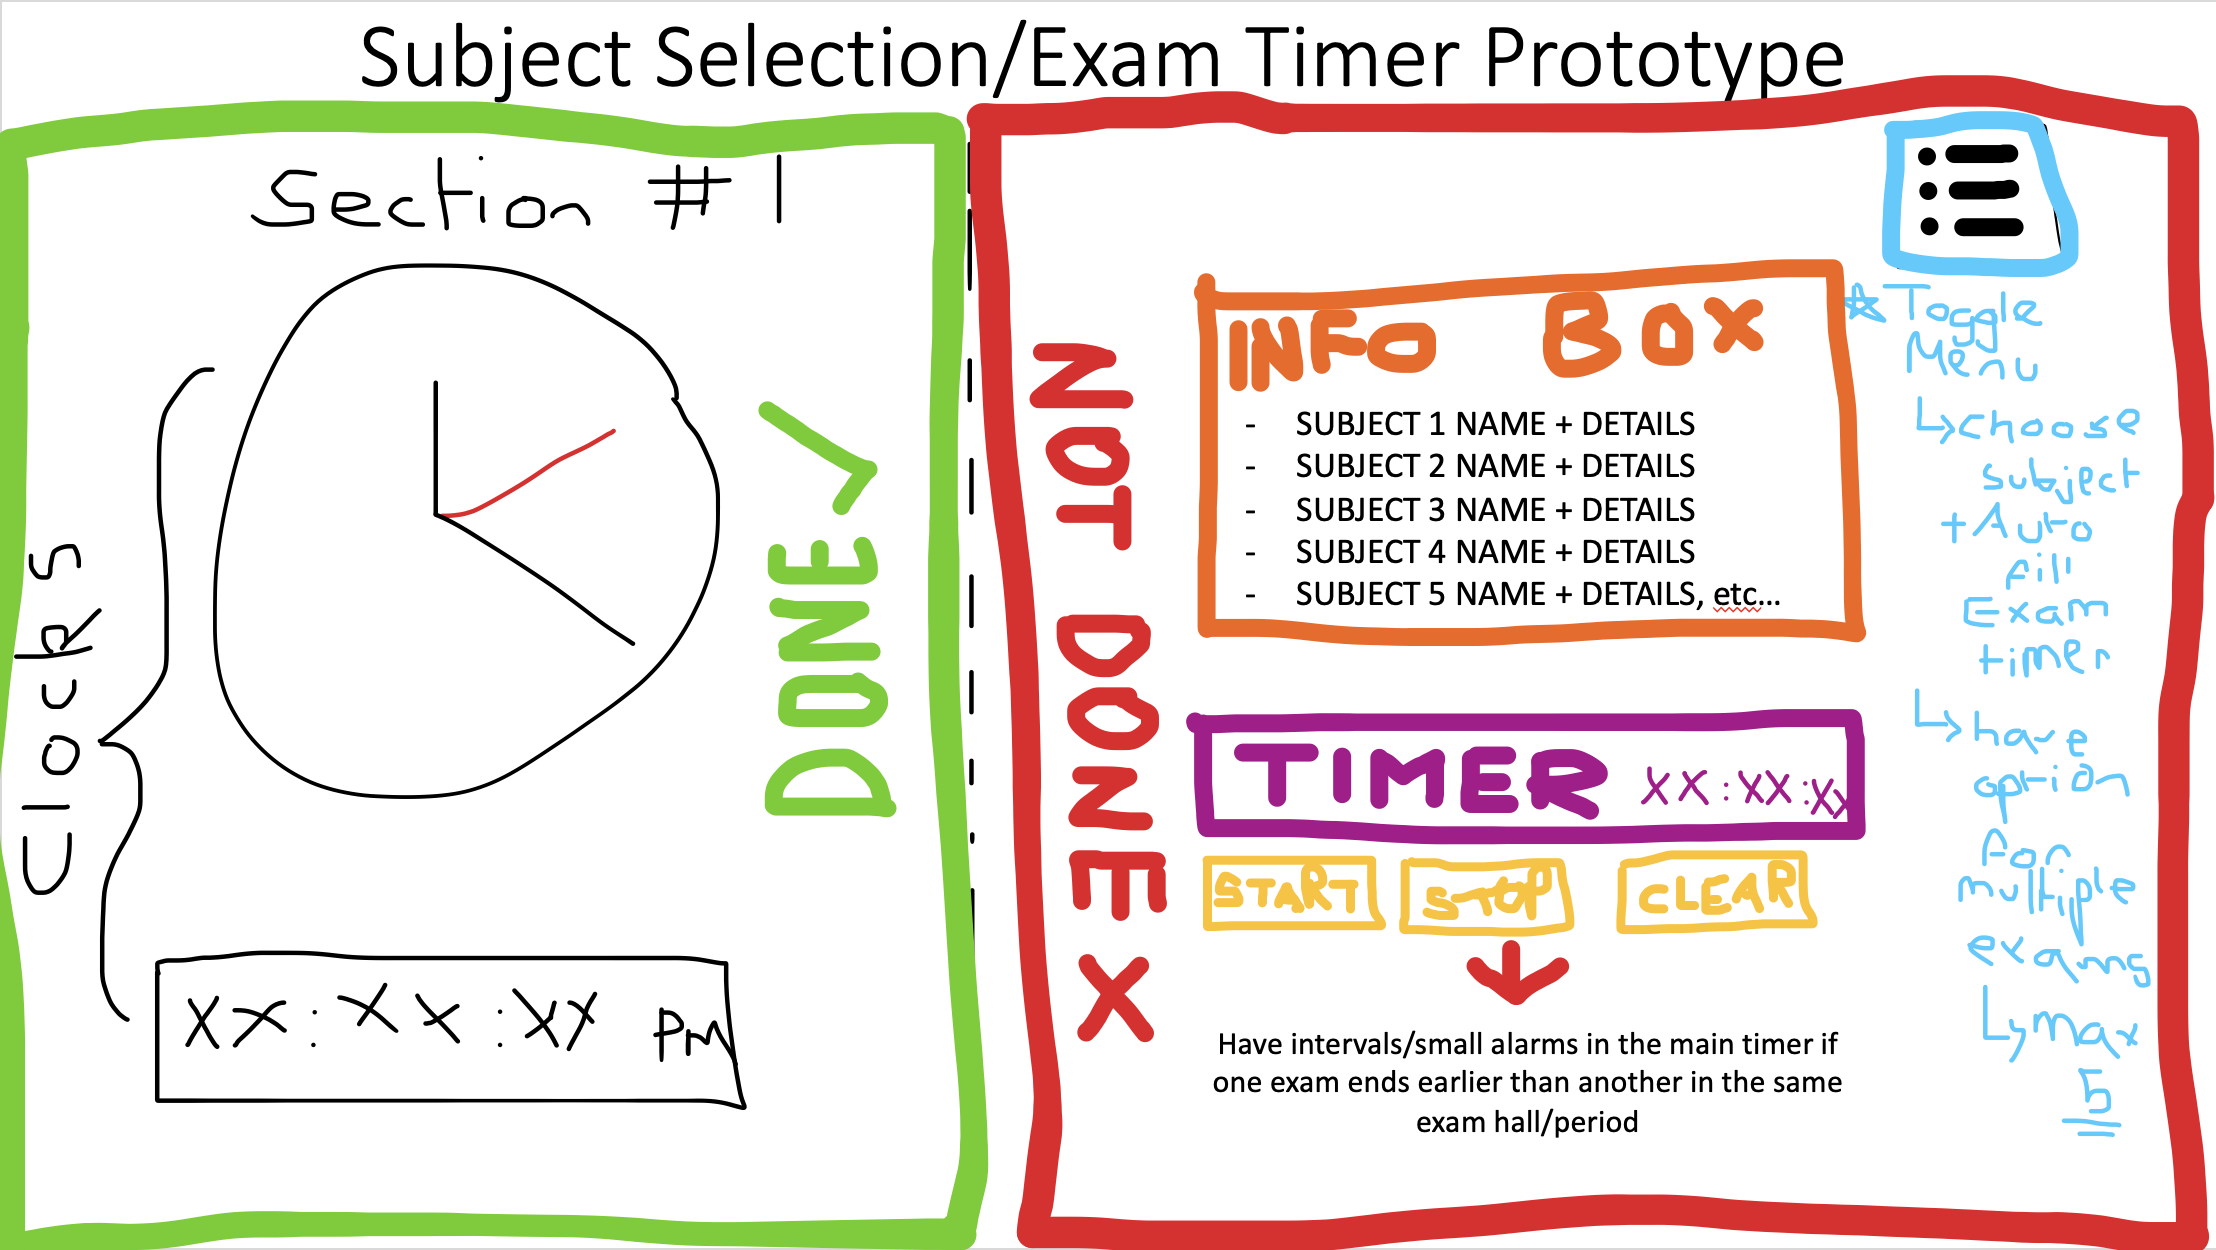 Subject Selection/Exam Timer Prototype
Section #1
Clocks
DONE
XX:XX:XX PM
NOT DONE X
INFO BOX
- SUBJECT 1 NAME + DETAILS
- SUBJECT 2 NAME + DETAILS
- SUBJECT 3 NAME + DETAILS
- SUBJECT 4 NAME + DETAILS
- SUBJECT 5 NAME + DETAILS, etc...
TIMER XX:XX:XX
START STOP CLEAR
Have intervals/small alarms in the main timer if
one exam ends earlier than another in the same
exam hall/period
Toggle
Menu
choose
subject
+ Auto
fill
Exam
timer
have
option
for
multiple
exams
max
5